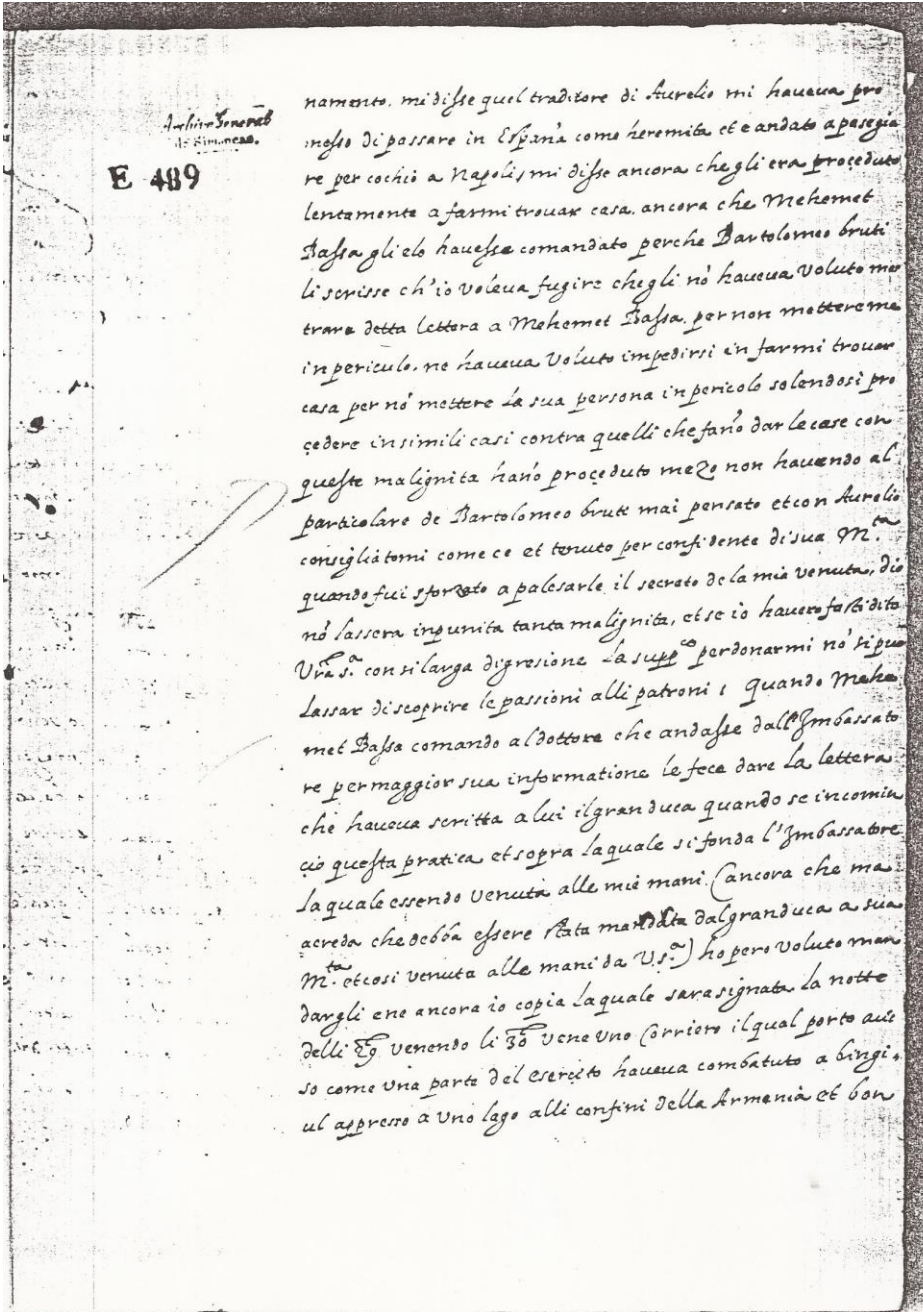 Archivo General
de Simancas.
E 489
namento. mi disse quel traditore di Aurelio mi haveva pro
messo di passare in España come heremita et e andato a pasegia
re per cochio a Napoli, mi disse ancora che gli era proceduto
lentamente a farmi trovar casa. ancora che Mehemet
Bassa gli elo havesse comandato perche Bartolomeo bruti
li scrisse ch'io voleva fugire che gli nō haveva voluto mos
trare detta lettera a Mehemet Bassa. per non mettere me
in periculo. ne haveva voluto impedirsi in farmi trovar
casa per nō mettere la sua persona in pericolo solendosi pro
cedere in simili casi contra quelli che fanō dar le case con
queste malignita hanō proceduto mezo non havendo al
particolare de Bartolomeo brute mai pensato et con Aurelio
consigliatomi come ce et tenuto per confidente di sua M.ta
quando fui sforzato a palesarle il secreto de la mia venuta, dio
nō lassera inpunita tanta malignita, et se io havero fastidito
Vra s.a con si larga digresione la supp.co perdonarmi nō si puo
lassar di scoprire le passioni alli patroni; Quando Mehe
met Bassa comando al dottore che andasse dall'Imbassato
re per maggior sua informatione le fece dare la lettera
che haveva scritta a lui il gran duca quando se incomin
cio questa pratica et sopra la quale si fonda l'Imbassatore
la quale essendo venuta alle mie mani (ancora che ma
acreda che debba essere stata mandata dal gran duca a sua
M.ta et cosi venuta alle mani da V.s.a) ho pero voluto man
dargli ene ancora io copia la quale sara signata. la notte
delli 29 venendo li 30 vene uno Corriero il qual porto avi
so come una parte del esercito haveva combatuto a bingi.
ul appresso a uno lago alli confini della Armenia et bon